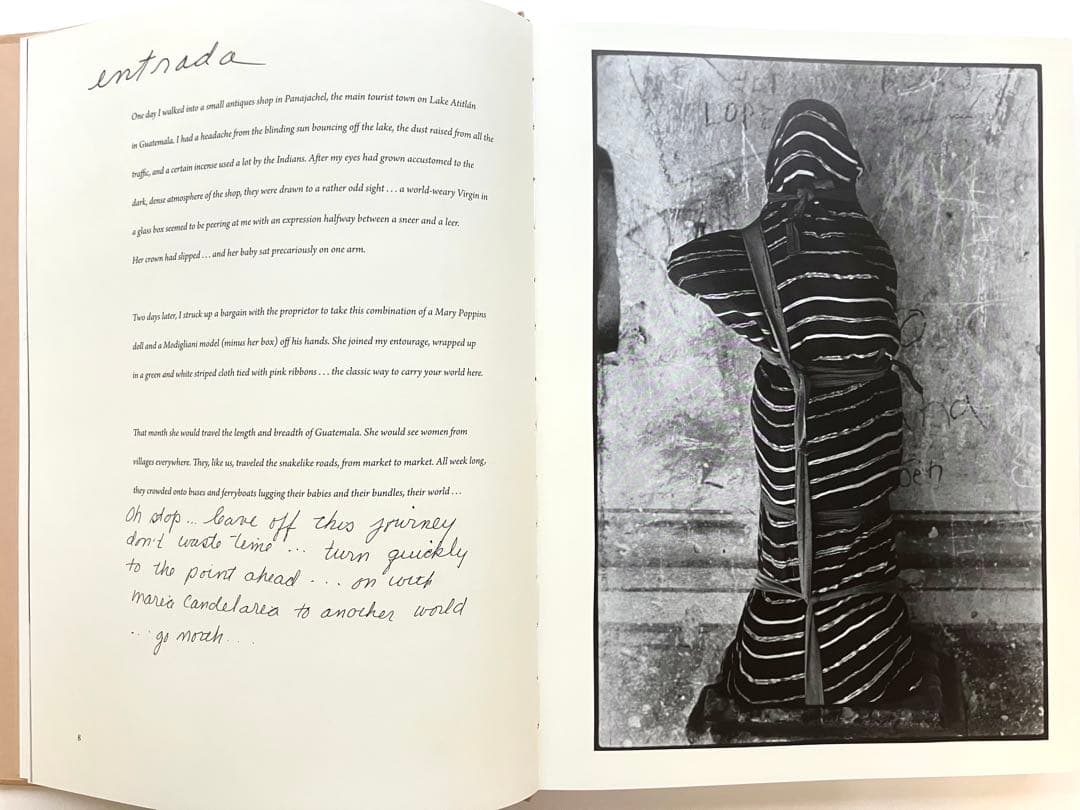 entrada
One day I walked into a small antiques shop in Panajachel, the main tourist town on Lake Atitlán
in Guatemala. I had a headache from the blinding sun bouncing off the lake, the dust raised from all the
traffic, and a certain incense used a lot by the Indians. After my eyes had grown accustomed to the
dark, dense atmosphere of the shop, they were drawn to a rather odd sight . . . a world-weary Virgin in
a glass box seemed to be peering at me with an expression halfway between a sneer and a leer.
Her crown had slipped . . . and her baby sat precariously on one arm.
Two days later, I struck up a bargain with the proprietor to take this combination of a Mary Poppins
doll and a Modigliani model (minus her box) off his hands. She joined my entourage, wrapped up
in a green and white striped cloth tied with pink ribbons . . . the classic way to carry your world here.
That month she would travel the length and breadth of Guatemala. She would see women from
villages everywhere. They, like us, traveled the snakelike roads, from market to market. All week long,
they crowded onto buses and ferryboats lugging their babies and their bundles, their world . . .
Oh stop... leave off this journey
don't waste time ... turn quickly
to the point ahead ... on with
Maria Candelarea to another world
... go north ...
8
LOP